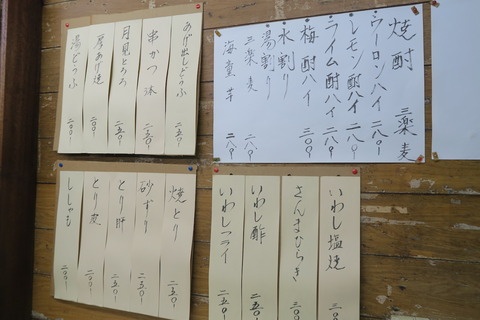 焼酎 三楽 麦
ウーロンハイ 二八〇-
レモン酎ハイ 二八〇-
ライム酎ハイ 二八〇-
梅酎ハイ 三〇〇-
水割り
湯割り
三楽 麦 二八〇-
海童 芋 二八〇-
あげ出しどうふ 二五〇-
串かつ 二五〇-
月見とろろ 二五〇-
厚あげ焼 二〇〇-
湯どうふ 二〇〇-
いわし塩焼
さんまひらき 三〇〇-
いわし酢 二五〇-
いわしフライ 二五〇-
焼とり 二五〇-
砂ずり 二五〇-
とり肝 二五〇-
とり皮 二〇〇-
ししゃも 二五〇-